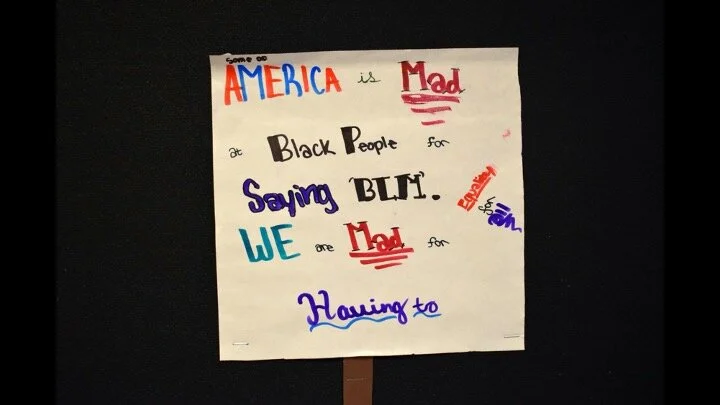 Some of
AMERICA is Mad
at Black People for
Saying 'BLM'.
WE are Mad for
Having to
Equality
for
all